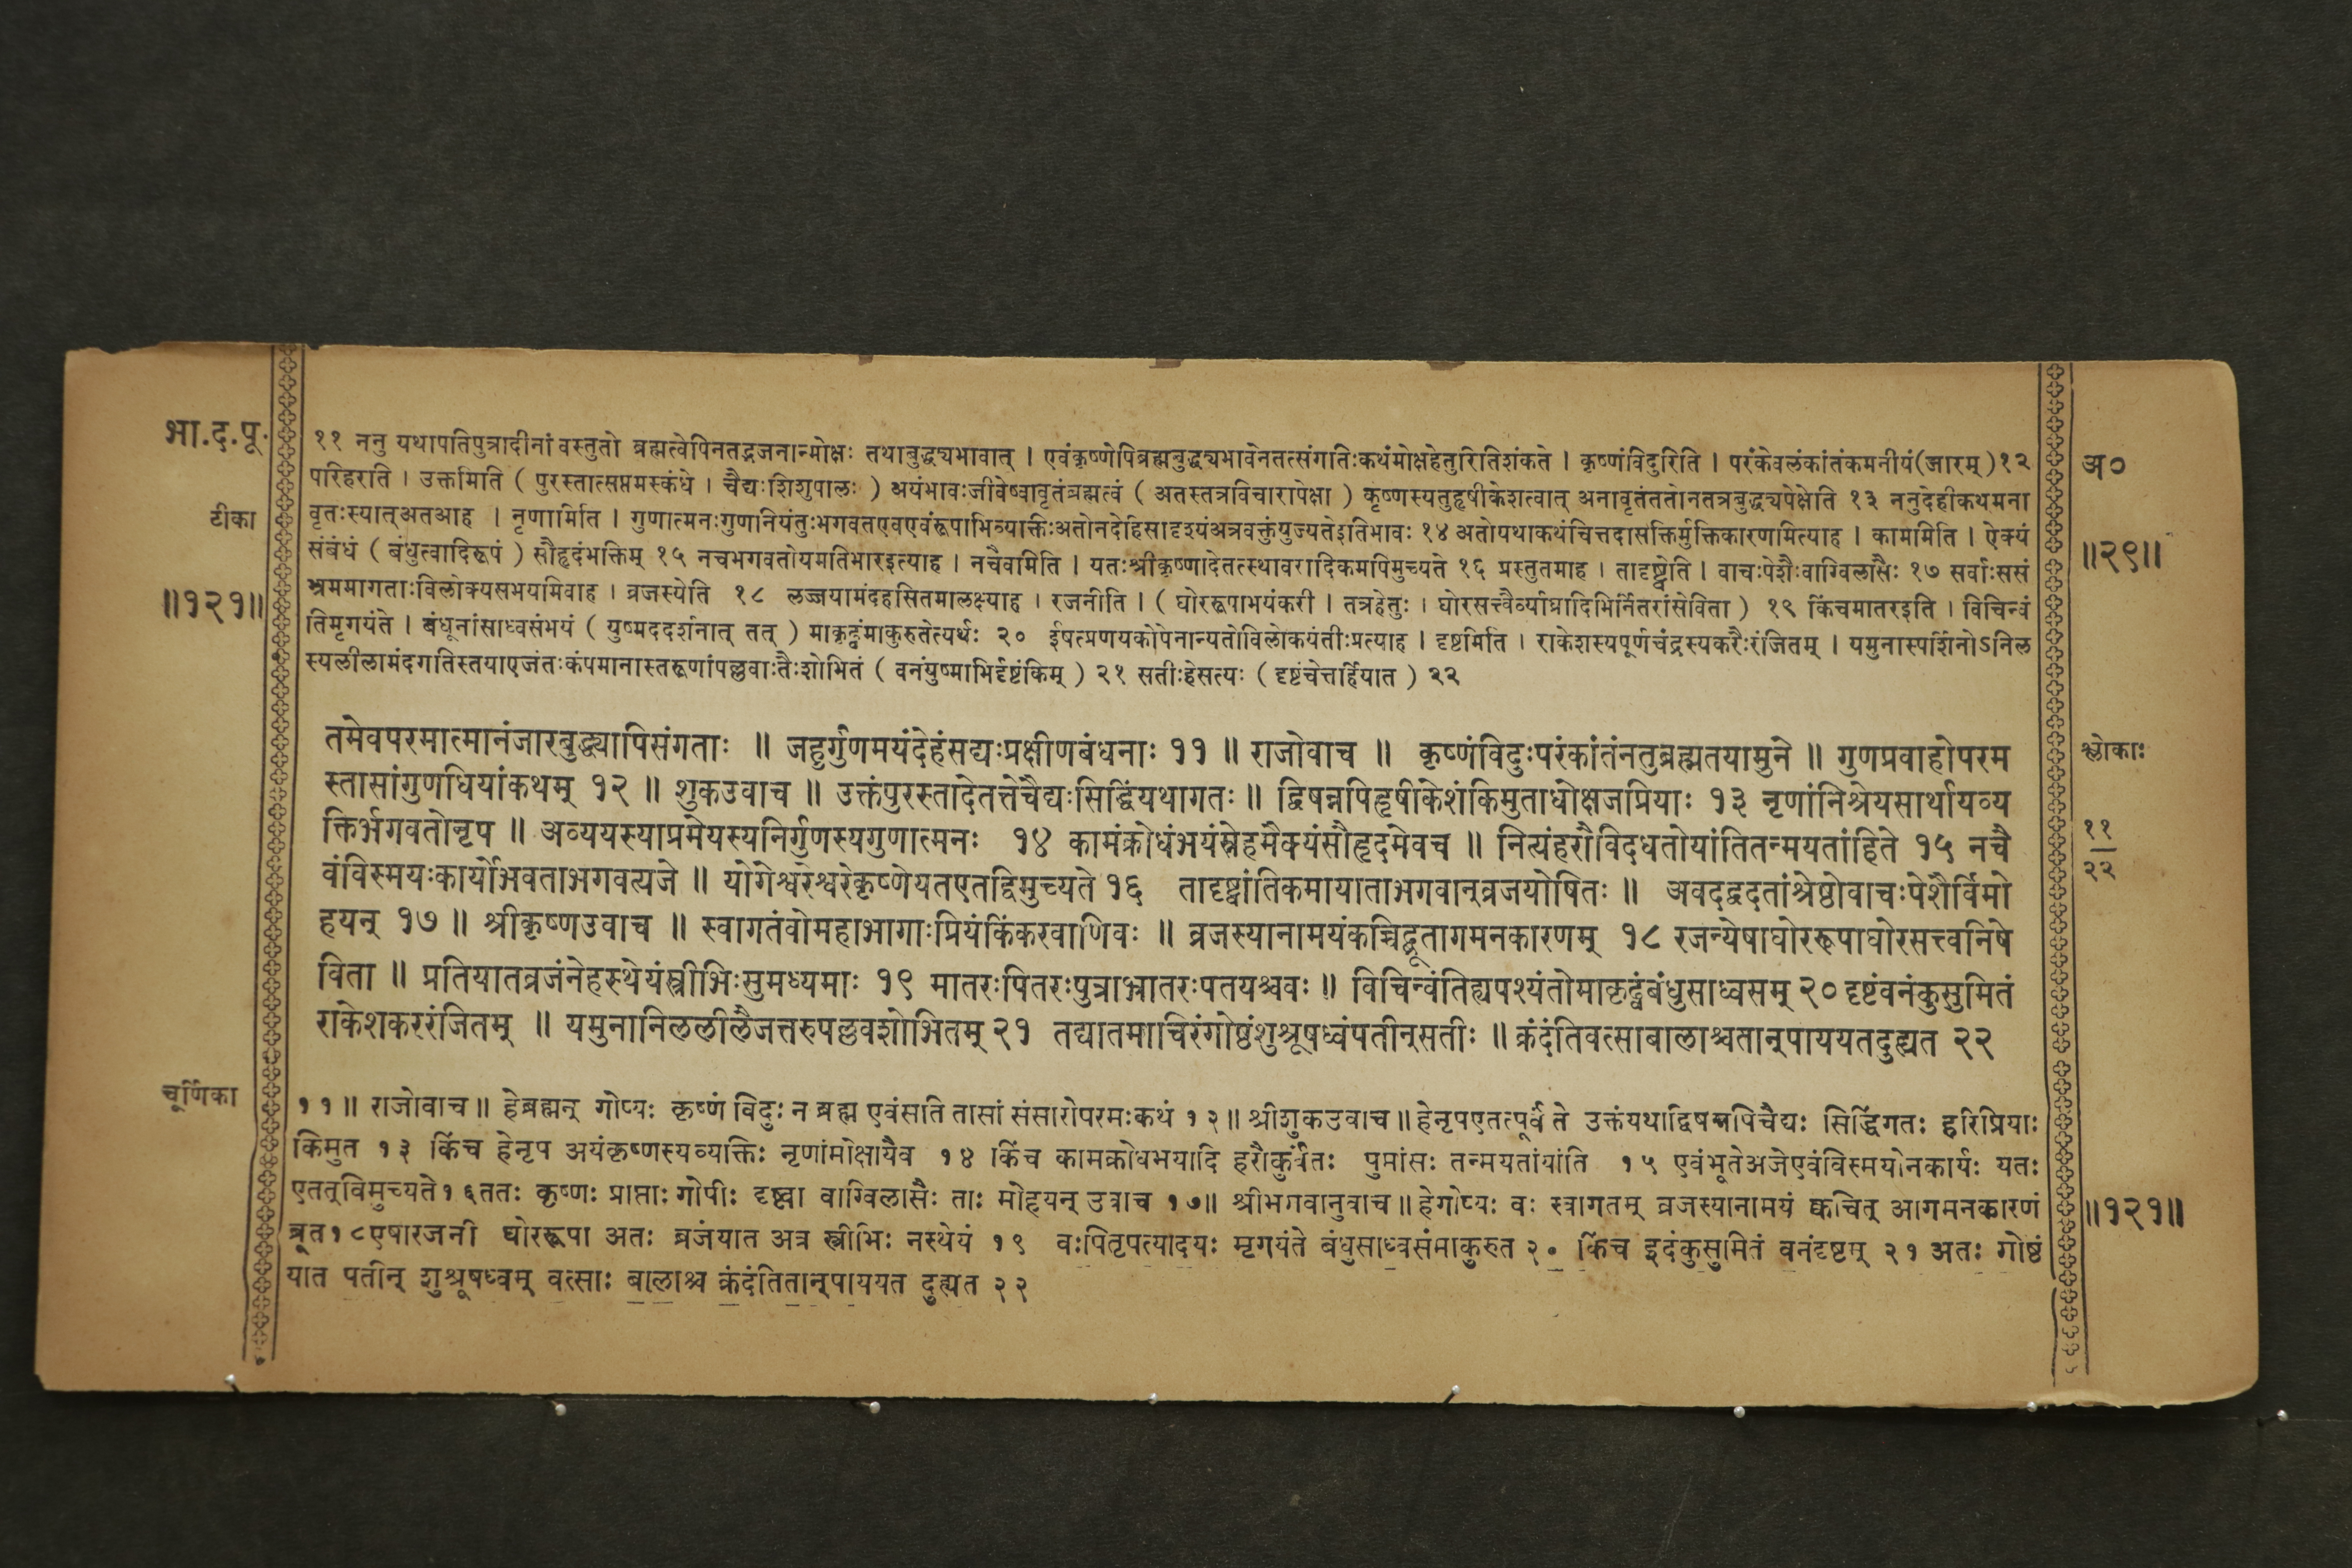 भा.द.पू.
११ ननु यथापतिपुत्रादीनां वस्तुतो ब्रह्मत्वेपिनतद्भजनान्मोक्षः तथाबुद्ध्यभावात् । एवंकृष्णेपिब्रह्मबुद्ध्यभावेनतत्संगतिःकथंमोक्षहेतुरितिशंकते । कृष्णंविदुरिति । परंकेवलंकांतंकमनीयं(जारम्)१२
अ०
परिहरति । उक्तमिति ( पुरस्तात्सप्तमस्कंधे । चैद्यःशिशुपालः ) अयंभावःजीवेष्वावृतंब्रह्मत्वं ( अतस्तत्रविचारापेक्षा ) कृष्णस्यतुहृषीकेशत्वात् अनावृतंततोनतत्रबुद्ध्यपेक्षेति १३ ननुदेहीकथमना
टीका
वृतःस्यात्अतआह । नृणामिति । गुणात्मनःगुणनियंतुःभगवतएवएवंरूपाभिव्यक्तिःअतोनदेहिसादृश्यंअत्रवक्तुंयुज्यतेइतिभावः १४ अतोयथाकथंचित्तदासक्तिर्मुक्तिकारणमित्याह । काममिति । ऐक्यं
॥२९॥
संबंधं ( बंधुत्वादिरूपं ) सौहृदंभक्तिम् १५ नचभगवतोयमतिभारइत्याह । नचैवमिति । यतःश्रीकृष्णादेतत्स्थावरादिकमपिमुच्यते १६ प्रस्तुतमाह । तादृष्ट्वेति । वाचःपेशैःवाग्विलासैः १७ सर्वाःससं
॥१२१॥
भ्रममागताःविलोक्यसभयमिवाह । व्रजस्येति १८ लज्जयामंदहसितमालक्ष्याह । रजनीति । ( घोररूपाभयंकरी । तत्रहेतुः । घोरसत्त्वैर्व्याघ्रादिभिर्नितरांसेविता ) १९ किंचमातरइति । विचिन्वं
तिमृगयंते । बंधूनांसाध्वसंभयं ( युष्मददर्शनात् तत् ) माकृढ्वंमाकुरुतेत्यर्थः २० ईषत्प्रणयकोपेनान्यतोविलोकयंतीःप्रत्याह । दृष्टमिति । राकेशस्यपूर्णचंद्रस्यकरैःरंजितम् । यमुनास्पर्शिनोऽनिल
स्यलीलामंदगतिस्तयाएजंतःकंपमानास्तरूणांपल्लवाःतैःशोभितं ( वनंयुष्माभिर्दृष्टंकिम् ) २१ सतीःहेसत्यः ( दृष्टंचेत्तर्हियात ) २२
तमेवपरमात्मानंजारबुद्ध्यापिसंगताः ॥ जहुर्गुणमयंदेहंसद्यःप्रक्षीणबंधनाः ११ ॥ राजोवाच ॥ कृष्णंविदुःपरंकांतंनतुब्रह्मतयामुने ॥ गुणप्रवाहोपरम
श्लोकाः
स्तासांगुणधियांकथम् १२ ॥ शुकउवाच ॥ उक्तंपुरस्तादेतत्तेचैद्यःसिद्धिंयथागतः ॥ द्विषन्नपिहृषीकेशंकिमुताधोक्षजप्रियाः १३ नृणांनिश्रेयसार्थायव्य
क्तिर्भगवतोनृप ॥ अव्ययस्याप्रमेयस्यनिर्गुणस्यगुणात्मनः १४ कामंक्रोधंभयंस्नेहमैक्यंसौहृदमेवच ॥ नित्यंहरौविदधतोयांतितन्मयतांहिते १५ नचै
११
२२
वंविस्मयःकार्योभवताभगवत्यजे ॥ योगेश्वरेश्वरेकृष्णेयतएतद्विमुच्यते १६ तादृष्ट्वांतिकमायाताभगवान्व्रजयोषितः ॥ अवदद्वदतांश्रेष्ठोवाचःपेशैर्विमो
हयन् १७ ॥ श्रीकृष्णउवाच ॥ स्वागतंवोमहाभागाःप्रियंकिंकरवाणिवः ॥ व्रजस्यानामयंकच्चिद्ब्रूतागमनकारणम् १८ रजन्येषाघोररूपाघोरसत्त्वनिषे
विता ॥ प्रतियातव्रजंनेहस्थेयंस्त्रीभिःसुमध्यमाः १९ मातरःपितरःपुत्राभ्रातरःपतयश्चवः ॥ विचिन्वंतिह्यपश्यंतोमाकृढ्वंबंधुसाध्वसम् २० दृष्टंवनंकुसुमितं
राकेशकररंजितम् ॥ यमुनानिललीलैजत्तरुपल्लवशोभितम् २१ तद्यातमाचिरंगोष्ठंशुश्रूषध्वंपतीन्सतीः ॥ क्रंदंतिवत्साबालाश्चतान्पाययतदुह्यत २२
चूर्णिका
११ ॥ राजोवाच ॥ हेब्रह्मन् गोप्यः कृष्णं विदुः न ब्रह्म एवंसति तासां संसारोपरमःकथं १२ ॥ श्रीशुकउवाच ॥ हेनृपएतत्पूर्वं ते उक्तंयथाद्विषन्नपिचैद्यः सिद्धिंगतः हरिप्रियाः
किमुत १३ किंच हेनृप अयंकृष्णस्यव्यक्तिः नृणांमोक्षायैव १४ किंच कामक्रोधभयादि हरौकुर्वंतः पुमांसः तन्मयतांयांति १५ एवंभूतेअजेएवंविस्मयोनकार्यः यतः
एतत्विमुच्यते१६ततः कृष्णः प्राप्ताः गोपीः दृष्ट्वा वाग्विलासैः ताः मोहयन् उवाच १७॥ श्रीभगवानुवाच ॥ हेगोप्यः वः स्वागतम् व्रजस्यानामयं कच्चित् आगमनकारणं
॥१२१॥
ब्रूत१८एषारजनी घोररूपा अतः व्रजंयात अत्र स्त्रीभिः नस्थेयं १९ वःपितृपत्यादयः मृगयंते बंधुसाध्वसंमाकुरुत २० किंच इदंकुसुमितं वनंदृष्टम् २१ अतः गोष्ठं
यात पतीन् शुश्रूषध्वम् वत्साः बालाश्च क्रंदंतितान्पाययत दुह्यत २२